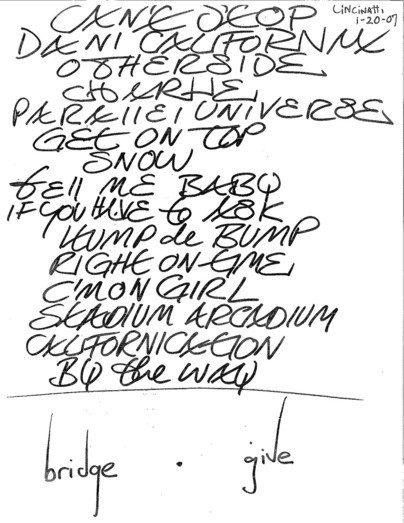 CAN'T STOP
LINCINATTI
1-20-07
DANI CALIFORNIA
OTHERSIDE
CHARLIE
PARALLEL UNIVERSE
GET ON TOP
SNOW
tell ME BABY
IF YOU HAVE to ASK
HUMP de BUMP
RIGHT ON TIME
C'MON GIRL
STADIUM ARCADIUM
CALIFORNICATION
BY the WAY
bridge . give